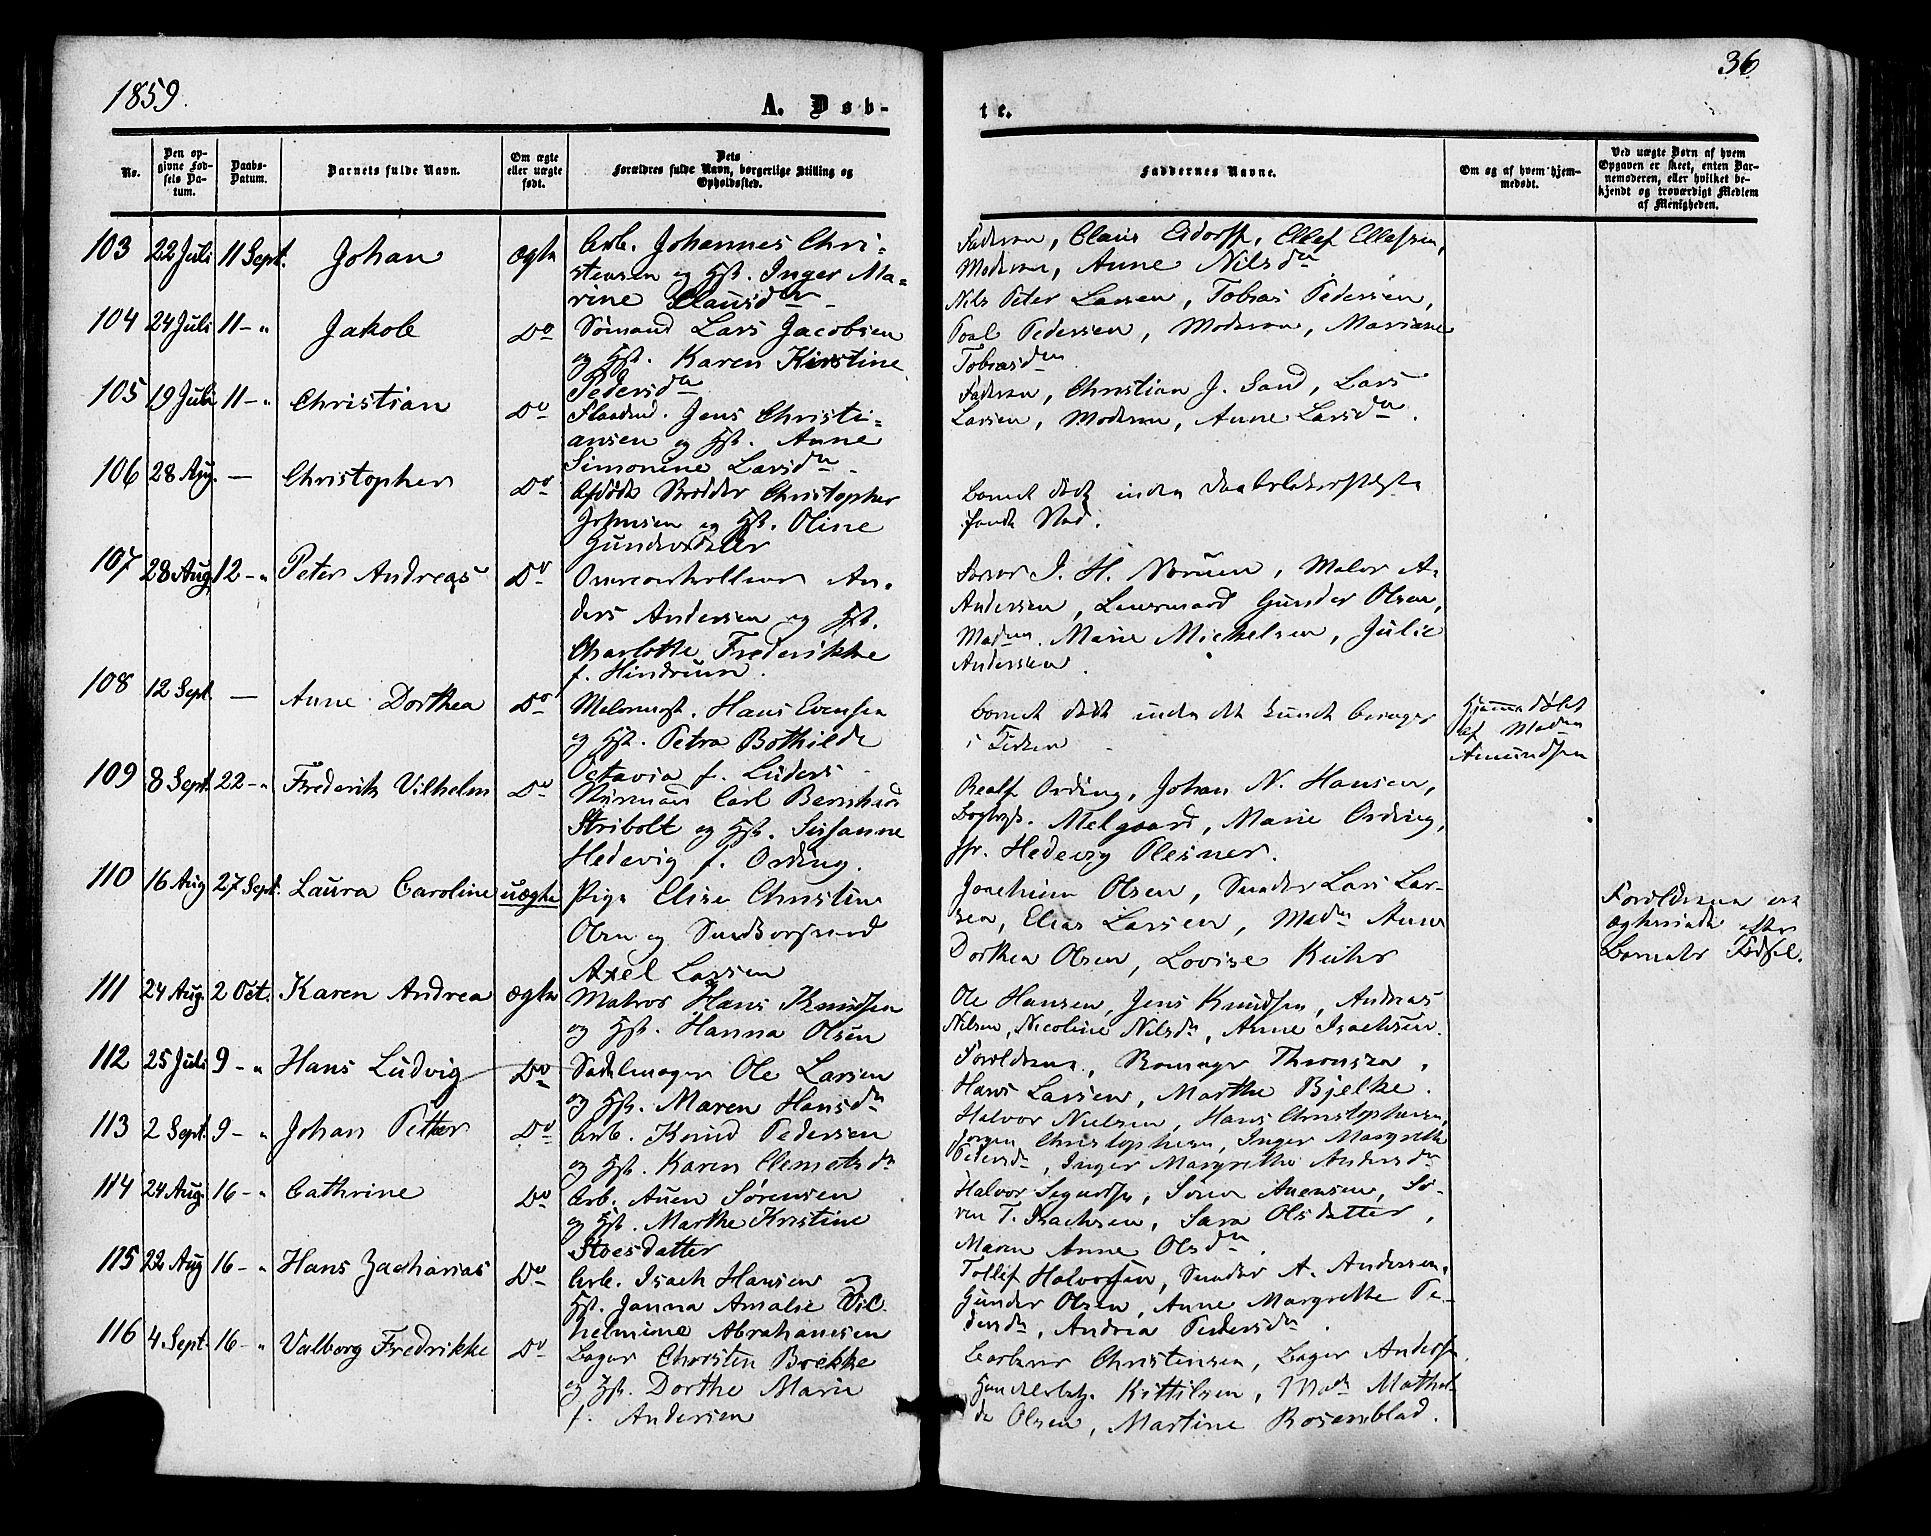 1859.
36
A. Døb-
te.
No.
Den op-
givne Fød-
sels Da-
tum.
Daabs-
Datum.
Barnets fulde Navn.
Om ægte
eller uægte
født.
Dets
Forældres fulde Navn, borgerlige Stilling og
Opholdssted.
Faddernes Navne.
Om og af hvem hjem-
medøbt.
Ved uægte Børn af hvem
Opgaven er skeet, enten Bar-
nemoderen, eller hvilket be-
kjendt og troværdigt Medlem
af Menigheden.
103 22 Juli 11 Sept. Johan ægte Arb. Johannes Chri-
stensen og Hst. Inger Ma-
rine Clausdtr
Faderen, Claus Eidorff, Ellef Ellefsen,
Moderen, Anne Nilsdtr
104 24 Juli 11 – " Jakob Do Sømand Lars Jacobsen
og Hst. Karen Kirstine
Pedersdtr
Nils Peter Larsen, Tobias Pedersen,
Poal Pedersen, Moderen, Mariane
Tobiasdtr
105 19 Juli 11 – " Christian Do Jens Christi-
ansen og Hst. Anne
Simonine Larsdtr
Faderen, Christian J. Sand, Lars
Larsen, Moderen, Anne Larsdtr.
106 28 Aug. — Christopher Do Afdøde Christopher
Johnsen og Hst. Oline
Gundersdatter
Barnet døde inden
fandt Sted.
107 28 Aug 12 – " Peter Andreas Do An-
ders Andersen og Hst.
Charlotte Frederikke
f. Hindrum.
J. H. Maler A.
Andersen, Gunder Olsen,
Madm. Marie Michelsen, Julie
Andersen.
108 12 Sept. — Anne Dorthea Do Malermest. Hans Evensen
og Hst. Petra Bothilde
Octavia f. Lüders
Barnet døde inden det kunde bringes
i Kirken
Hjemmedøbt
af Madm
Amundsen
109 8 Sept. 22 – " Frederik Vilhelm Do Styrmand Carl Bernhard
Stribolt og Hst. Susanne
Hedevig f. Ording.
Realf Ording, Johan N. Hansen,
Melgaard, Marie Ording,
Jfr. Hedevig Plesner.
110 16 Aug 27 Sept. Laura Caroline uægte Pige Elise Christine
Olsen og
Axel Larsen
Joachim Olsen, Lars Lar-
sen, Elias Larsen, Madm Anne
Dorthea Olsen, Lovise Kühr
Forældrene ere
ægteviede efter
Barnets Fødsel.
111 24 Aug. 2 Oct. Karen Andrea ægte Matros Hans Knudsen
og Hst. Hanna Olsen
Ole Hansen, Jens Knudsen, Andreas
Nilsen, Nicoline Nilsdtr, Anne Isachsen.
112 25 Juli 9 – " Hans Ludvig Do Sadelmager Ole Larsen
og Hst. Maren Hansdtr
Forældrene, Thronsen,
Hans Larsen, Marthe Bjelke.
113 2 Sept. 9 – " Johan Petter Do Arb. Knud Pedersen
og Hst. Karen Clemetsdtr
Halvor Nielsen, Hans Christophersen,
Jørgen Christophersen, Inger Margrethe
Pedersdtr, Inger Margrethe Andersdtr
114 24 Aug. 16 – " Cathrine Do Arb. Auen Sørensen
og Hst. Marthe Kristine
Stoesdatter
Halvor Søren Auensen, Sø-
ren T. Isachsen, Sara Olsdatter,
Maren Anne Olsdtr.
115 22 Aug 16 – " Hans Zacharias Do Arb. Isach Hansen og
Hst. Janna Amalie Vil-
helmine Abrahamsen
Tollef Halvorsen, A. Andersen,
Gunder Olsen, Anne Margrethe Pe-
dersdtr, Andrea Pedersdtr.
116 4 Sept. 16 – " Valborg Fredrikke Do Bager Christen Brekke
og Hst. Dorthe Marie
f. Andersen
Christensen, Bager Andersen,
Kittilsen, Mads Mathil-
de Olsen, Martine Rosenblad.